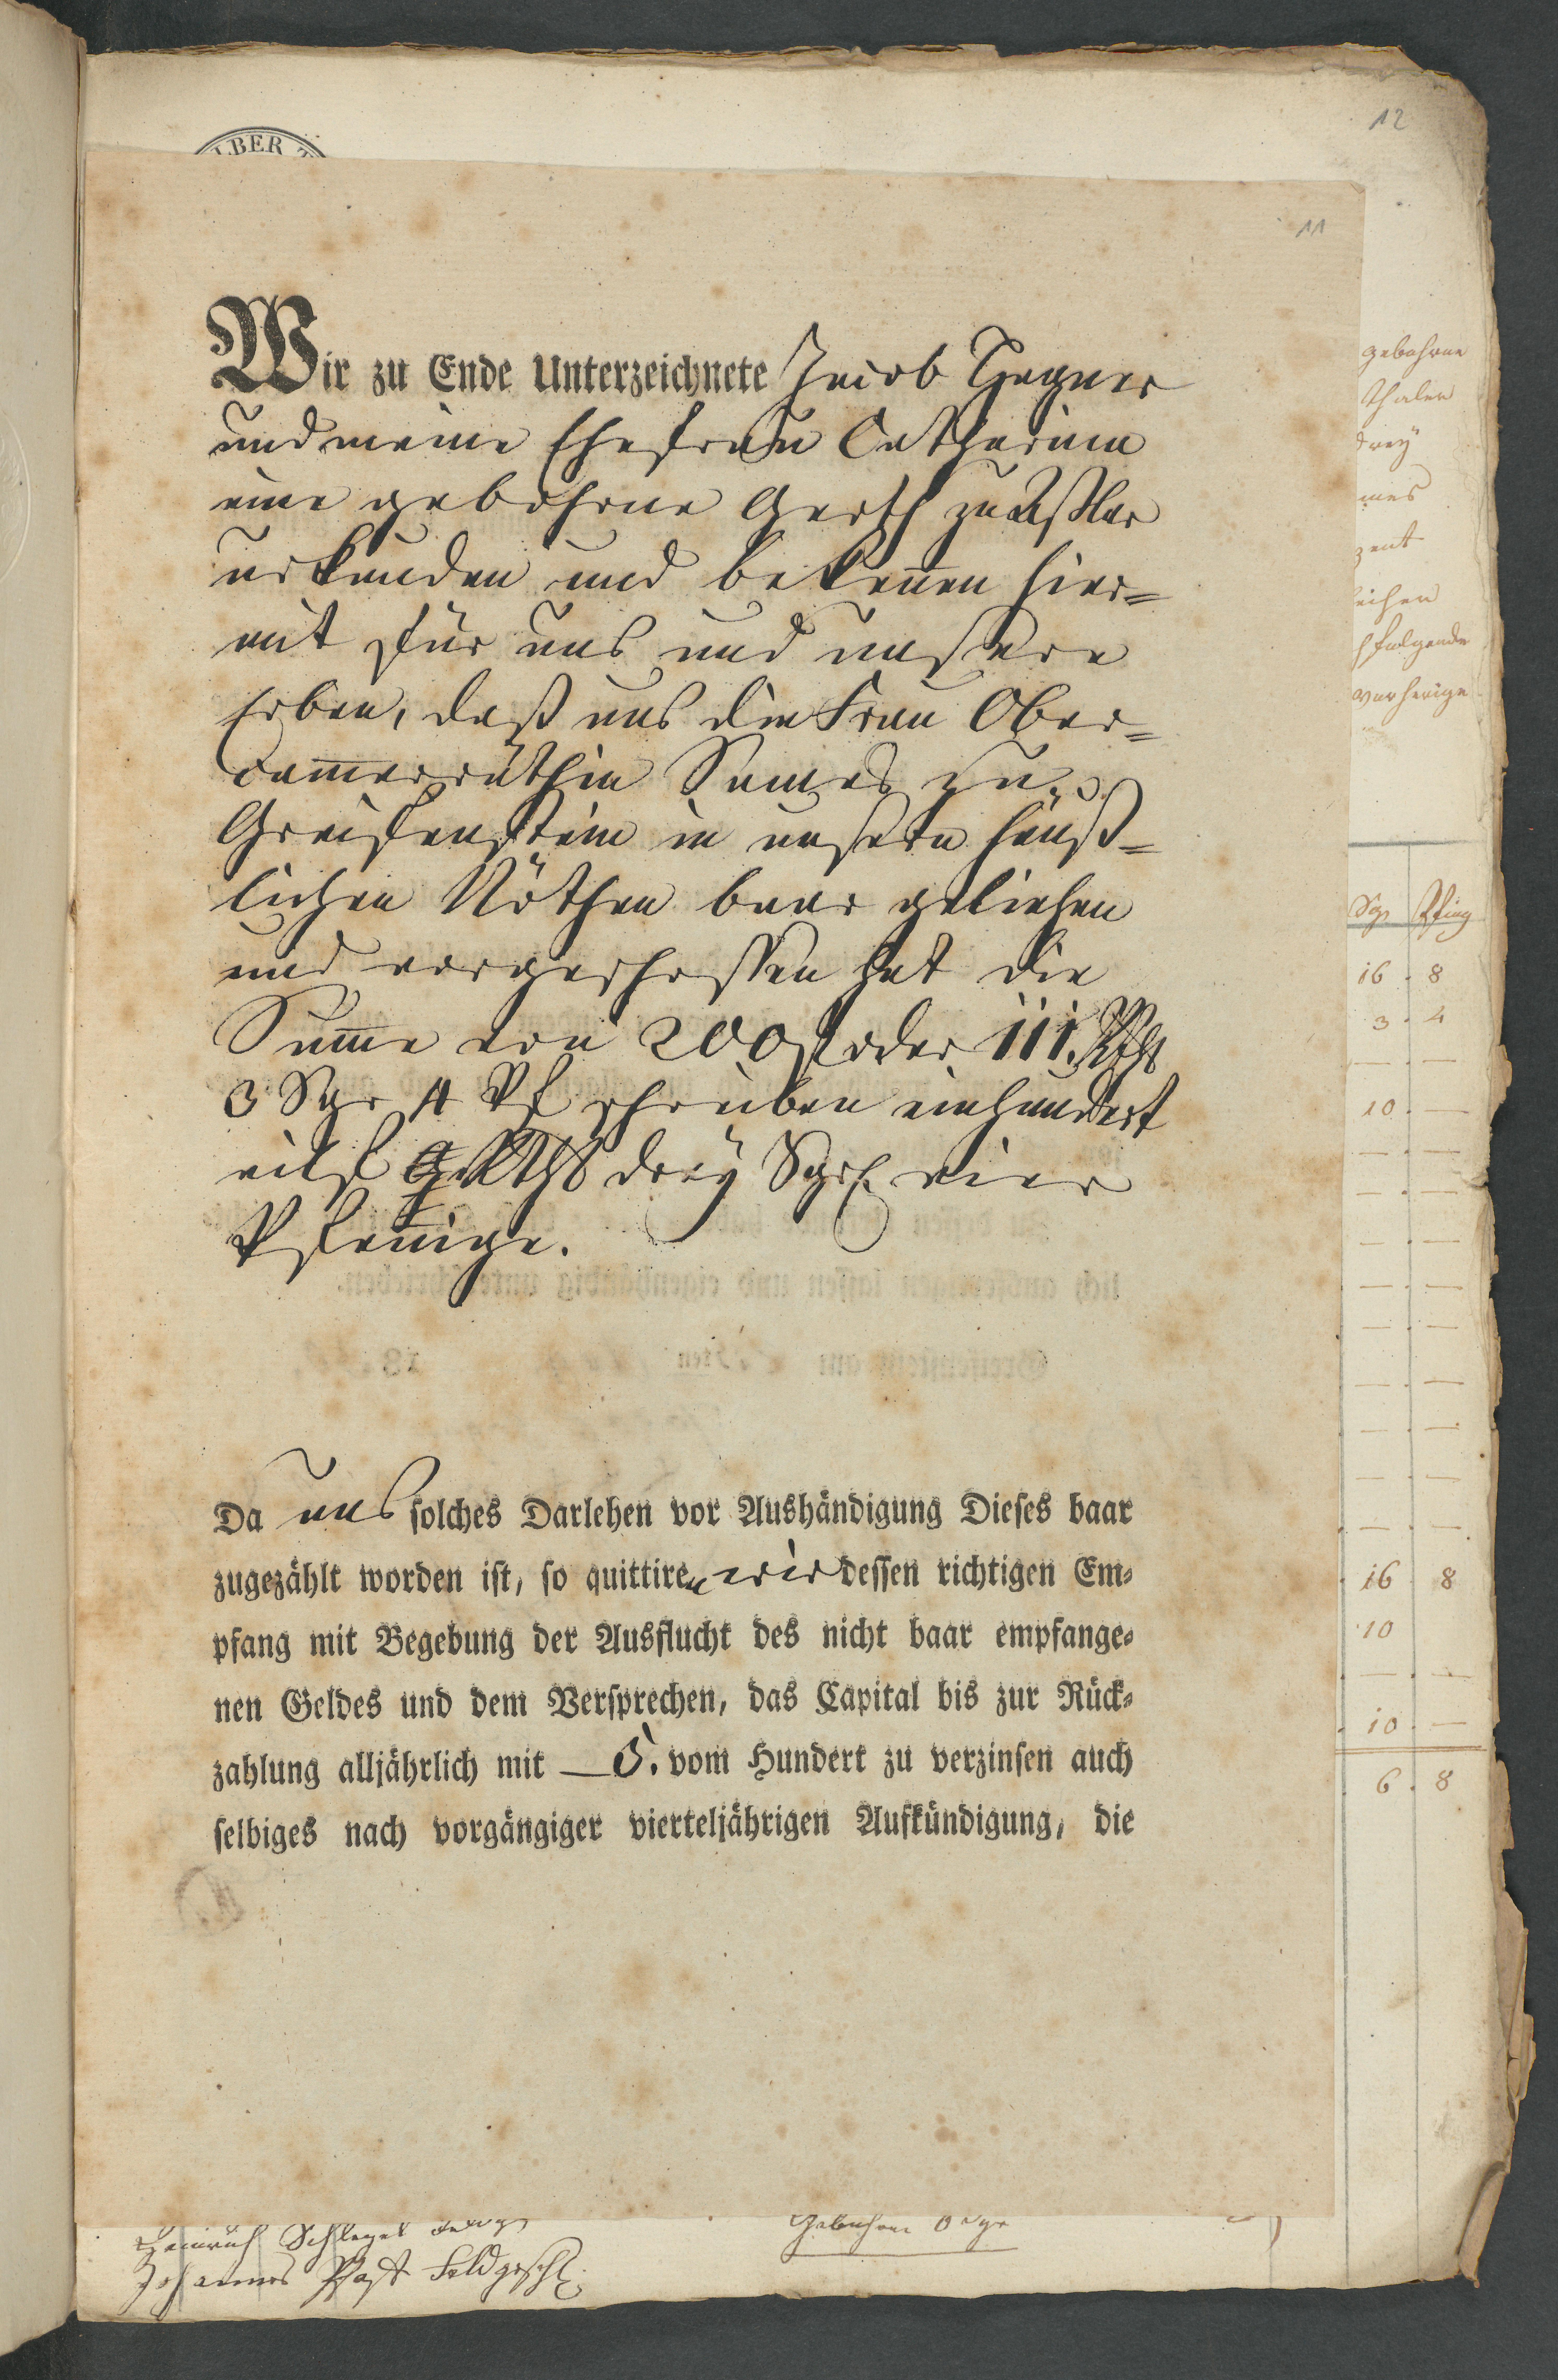 12
LBER
11
Wir zu Ende Unterzeichnete Jacob Hegner
und meine Ehefrau Catharina
eine gebohrne Gerth zu Aßlar
urkunden und bekeñen hier=
mit für uns und unsere
Erben, daß uns die Frau Ober=
cam̄erräthin Sames zu
Greifenstein in unsern häuß=
lichen Nöthen baar geliehen
und vorgeschossen hat die
Sum̄e von 200 f oder 111. Rths
3 Sgr 4 Pf schreiben einhundert
eilf Rths drey Sgr vier
Pfeñige.
Da uns solches Darlehen vor Aushändigung Dieses baar
zugezählt worden ist, so quittiren wir dessen richtigen Em=
pfang mit Begebung der Ausflucht des nicht baar empfange=
nen Geldes und dem Versprechen, das Capital bis zur Rück=
zahlung alljährlich mit 5. vom Hundert zu verzinsen auch
selbiges nach vorgängiger vierteljährigen Aufkündigung, die
gebohrne
thaler
drey
zent
folgende
vorherige
Sgr Pfing
16 . 8
3 . 4
10 . —
16 . 8
10
10 . —
6 . 8
Heinrich Schlegel
Johannes Post Feldgesch